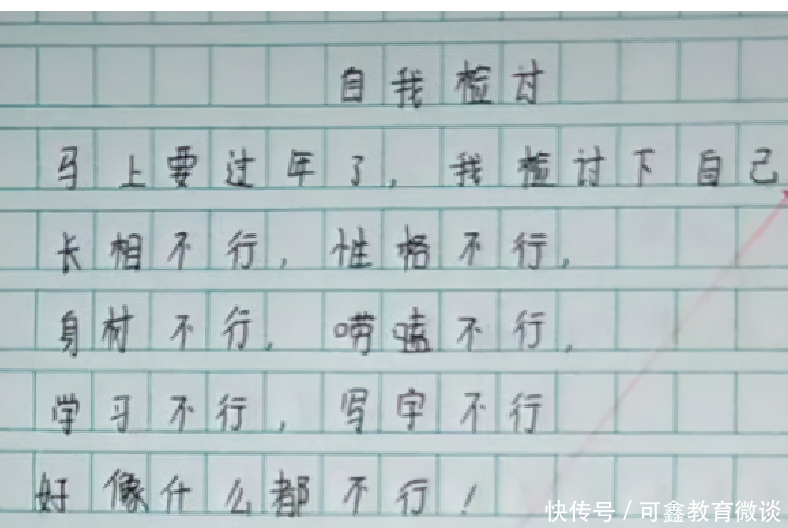 自我检讨
马上要过年了，我检讨下自己
长相不行，性格不行，
身材不行，唠嗑不行，
学习不行，写字不行
好像什么都不行！
快传号/可鑫教育微谈